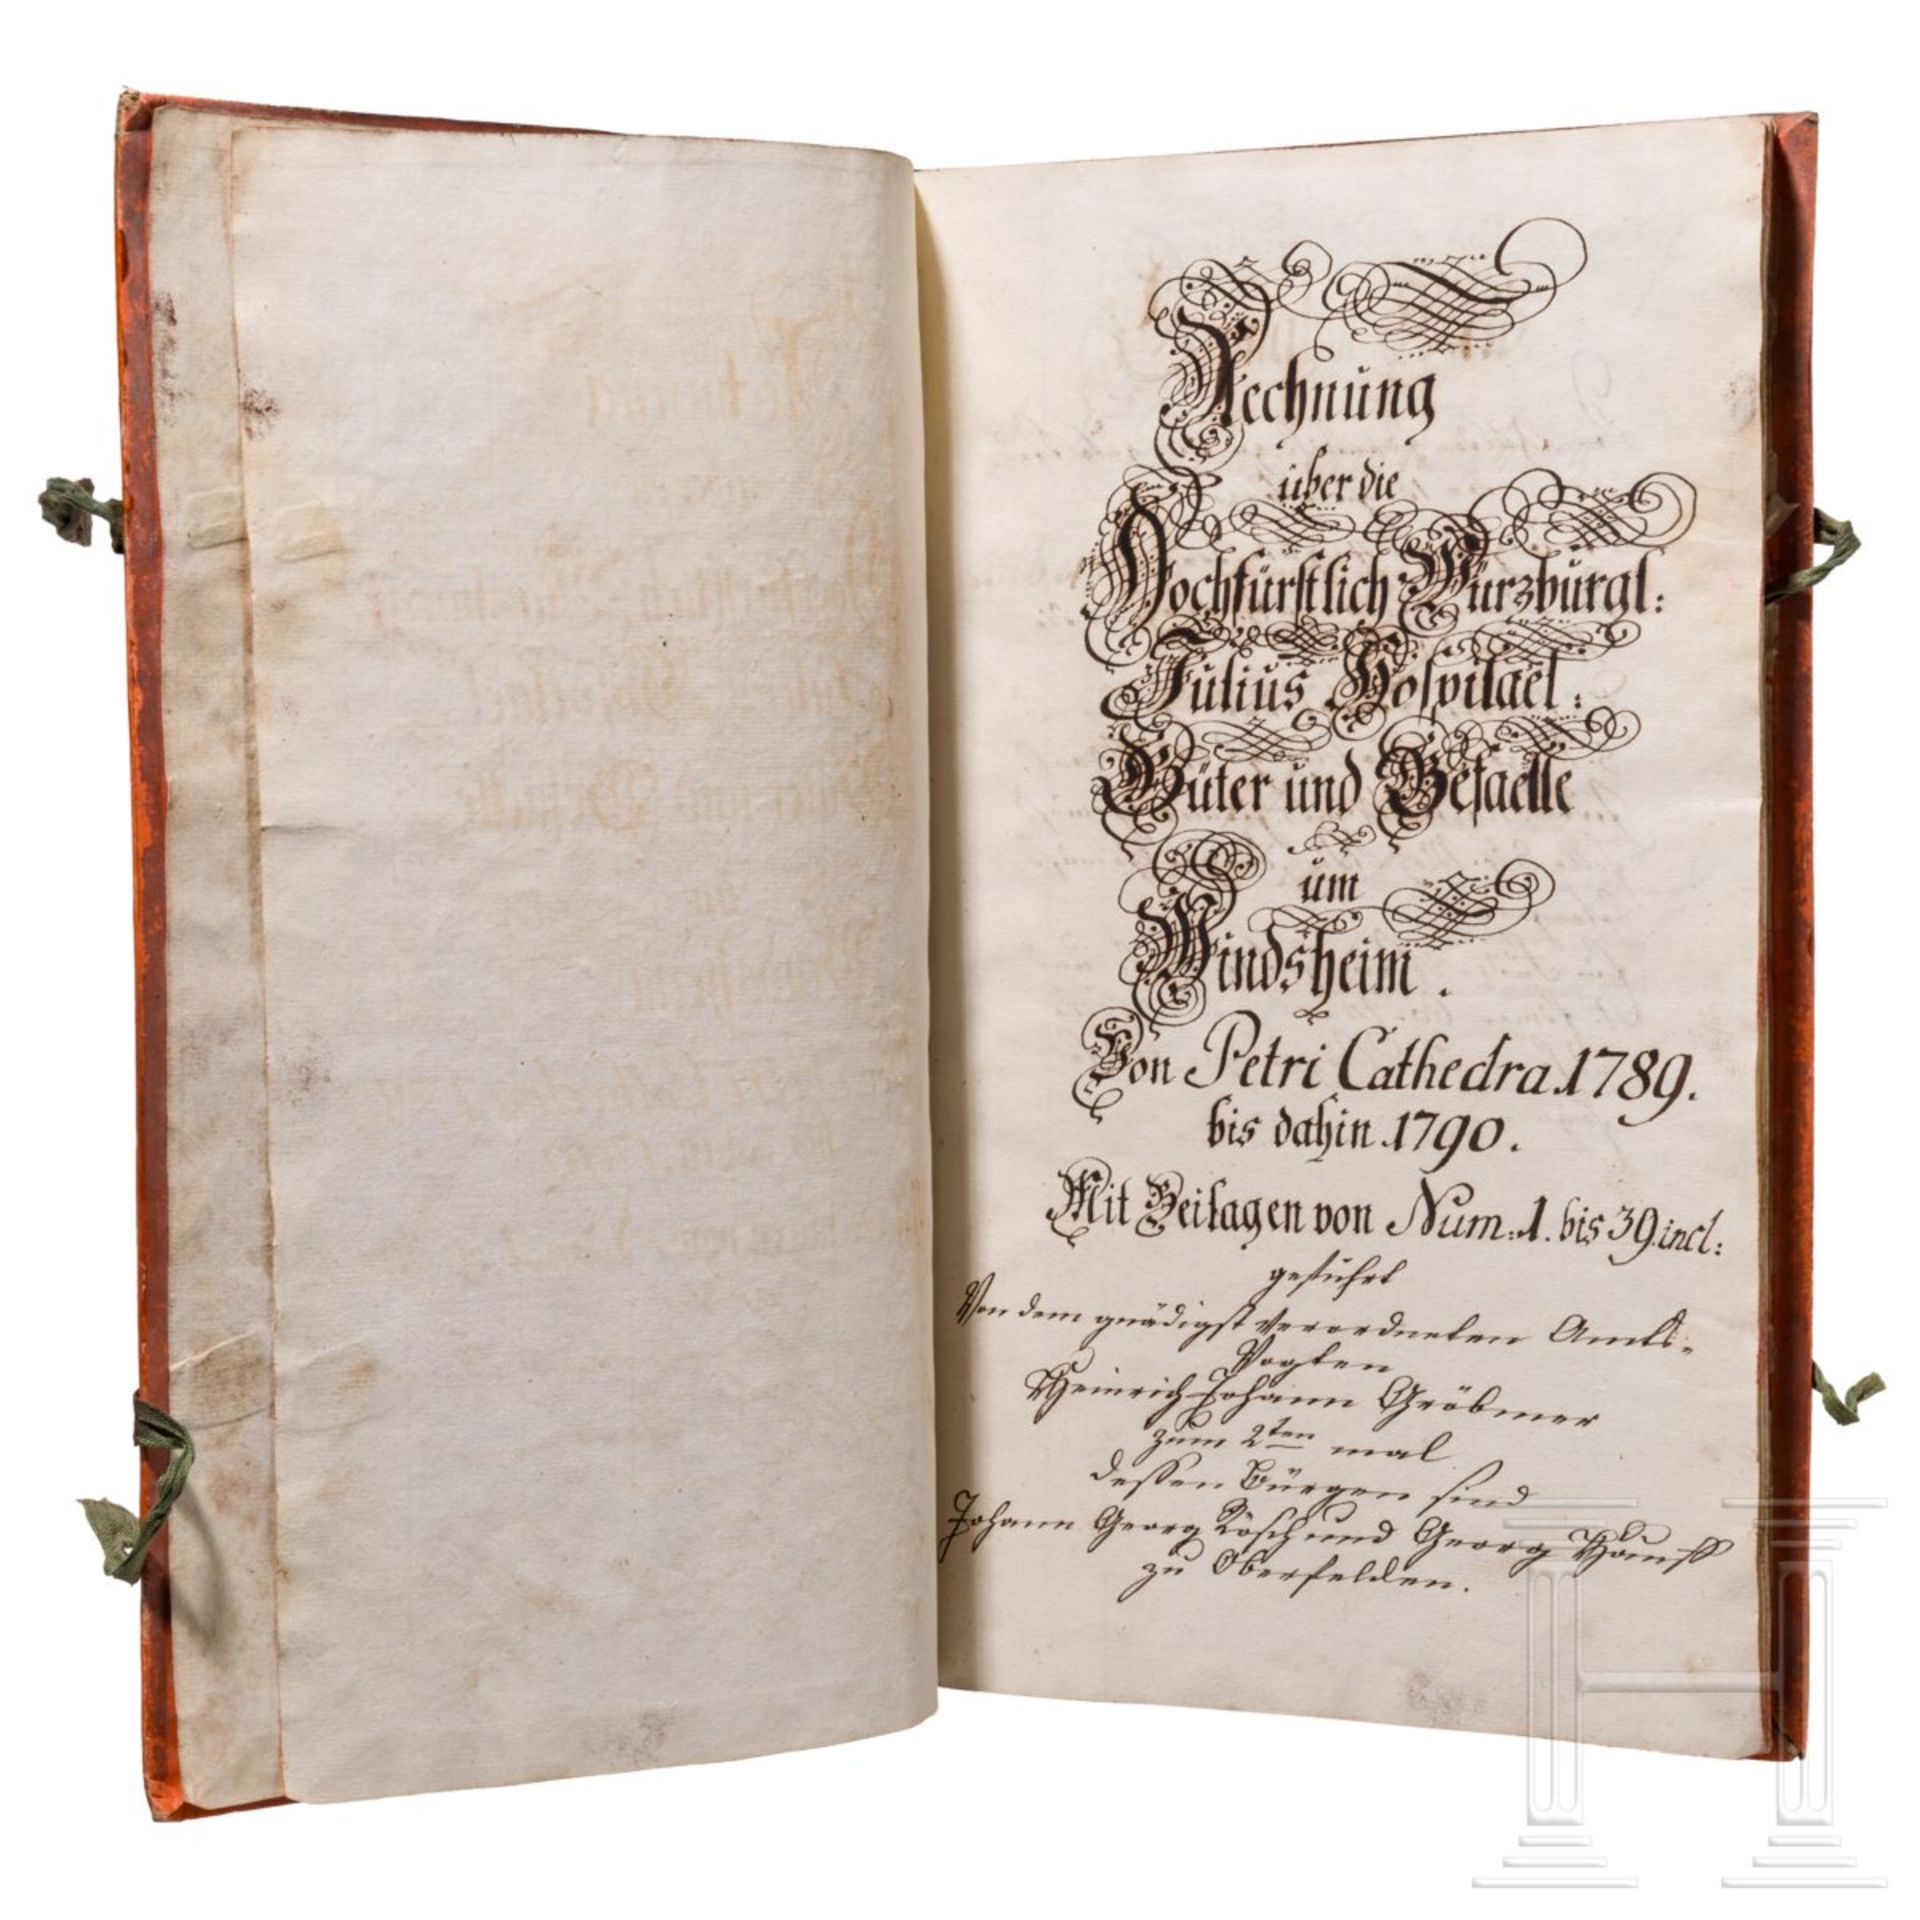 Rechnung
über die
Hochfürstlich Würzburgl:
Julius Hospitael:
Güter und Gefaelle
um
Windsheim.
Von Petri Cathedra 1789.
bis dahin 1790.
Mit Beilagen von Num: 1. bis 39. incl:
geführt
Von dem gnädigst verordneten Amts-
Vogten
Heinrich Johann Gröbmer
zum 2ten mal
dessen Bürgen sind
Johann Georg Rösch und Georg
zu Oberfelden.